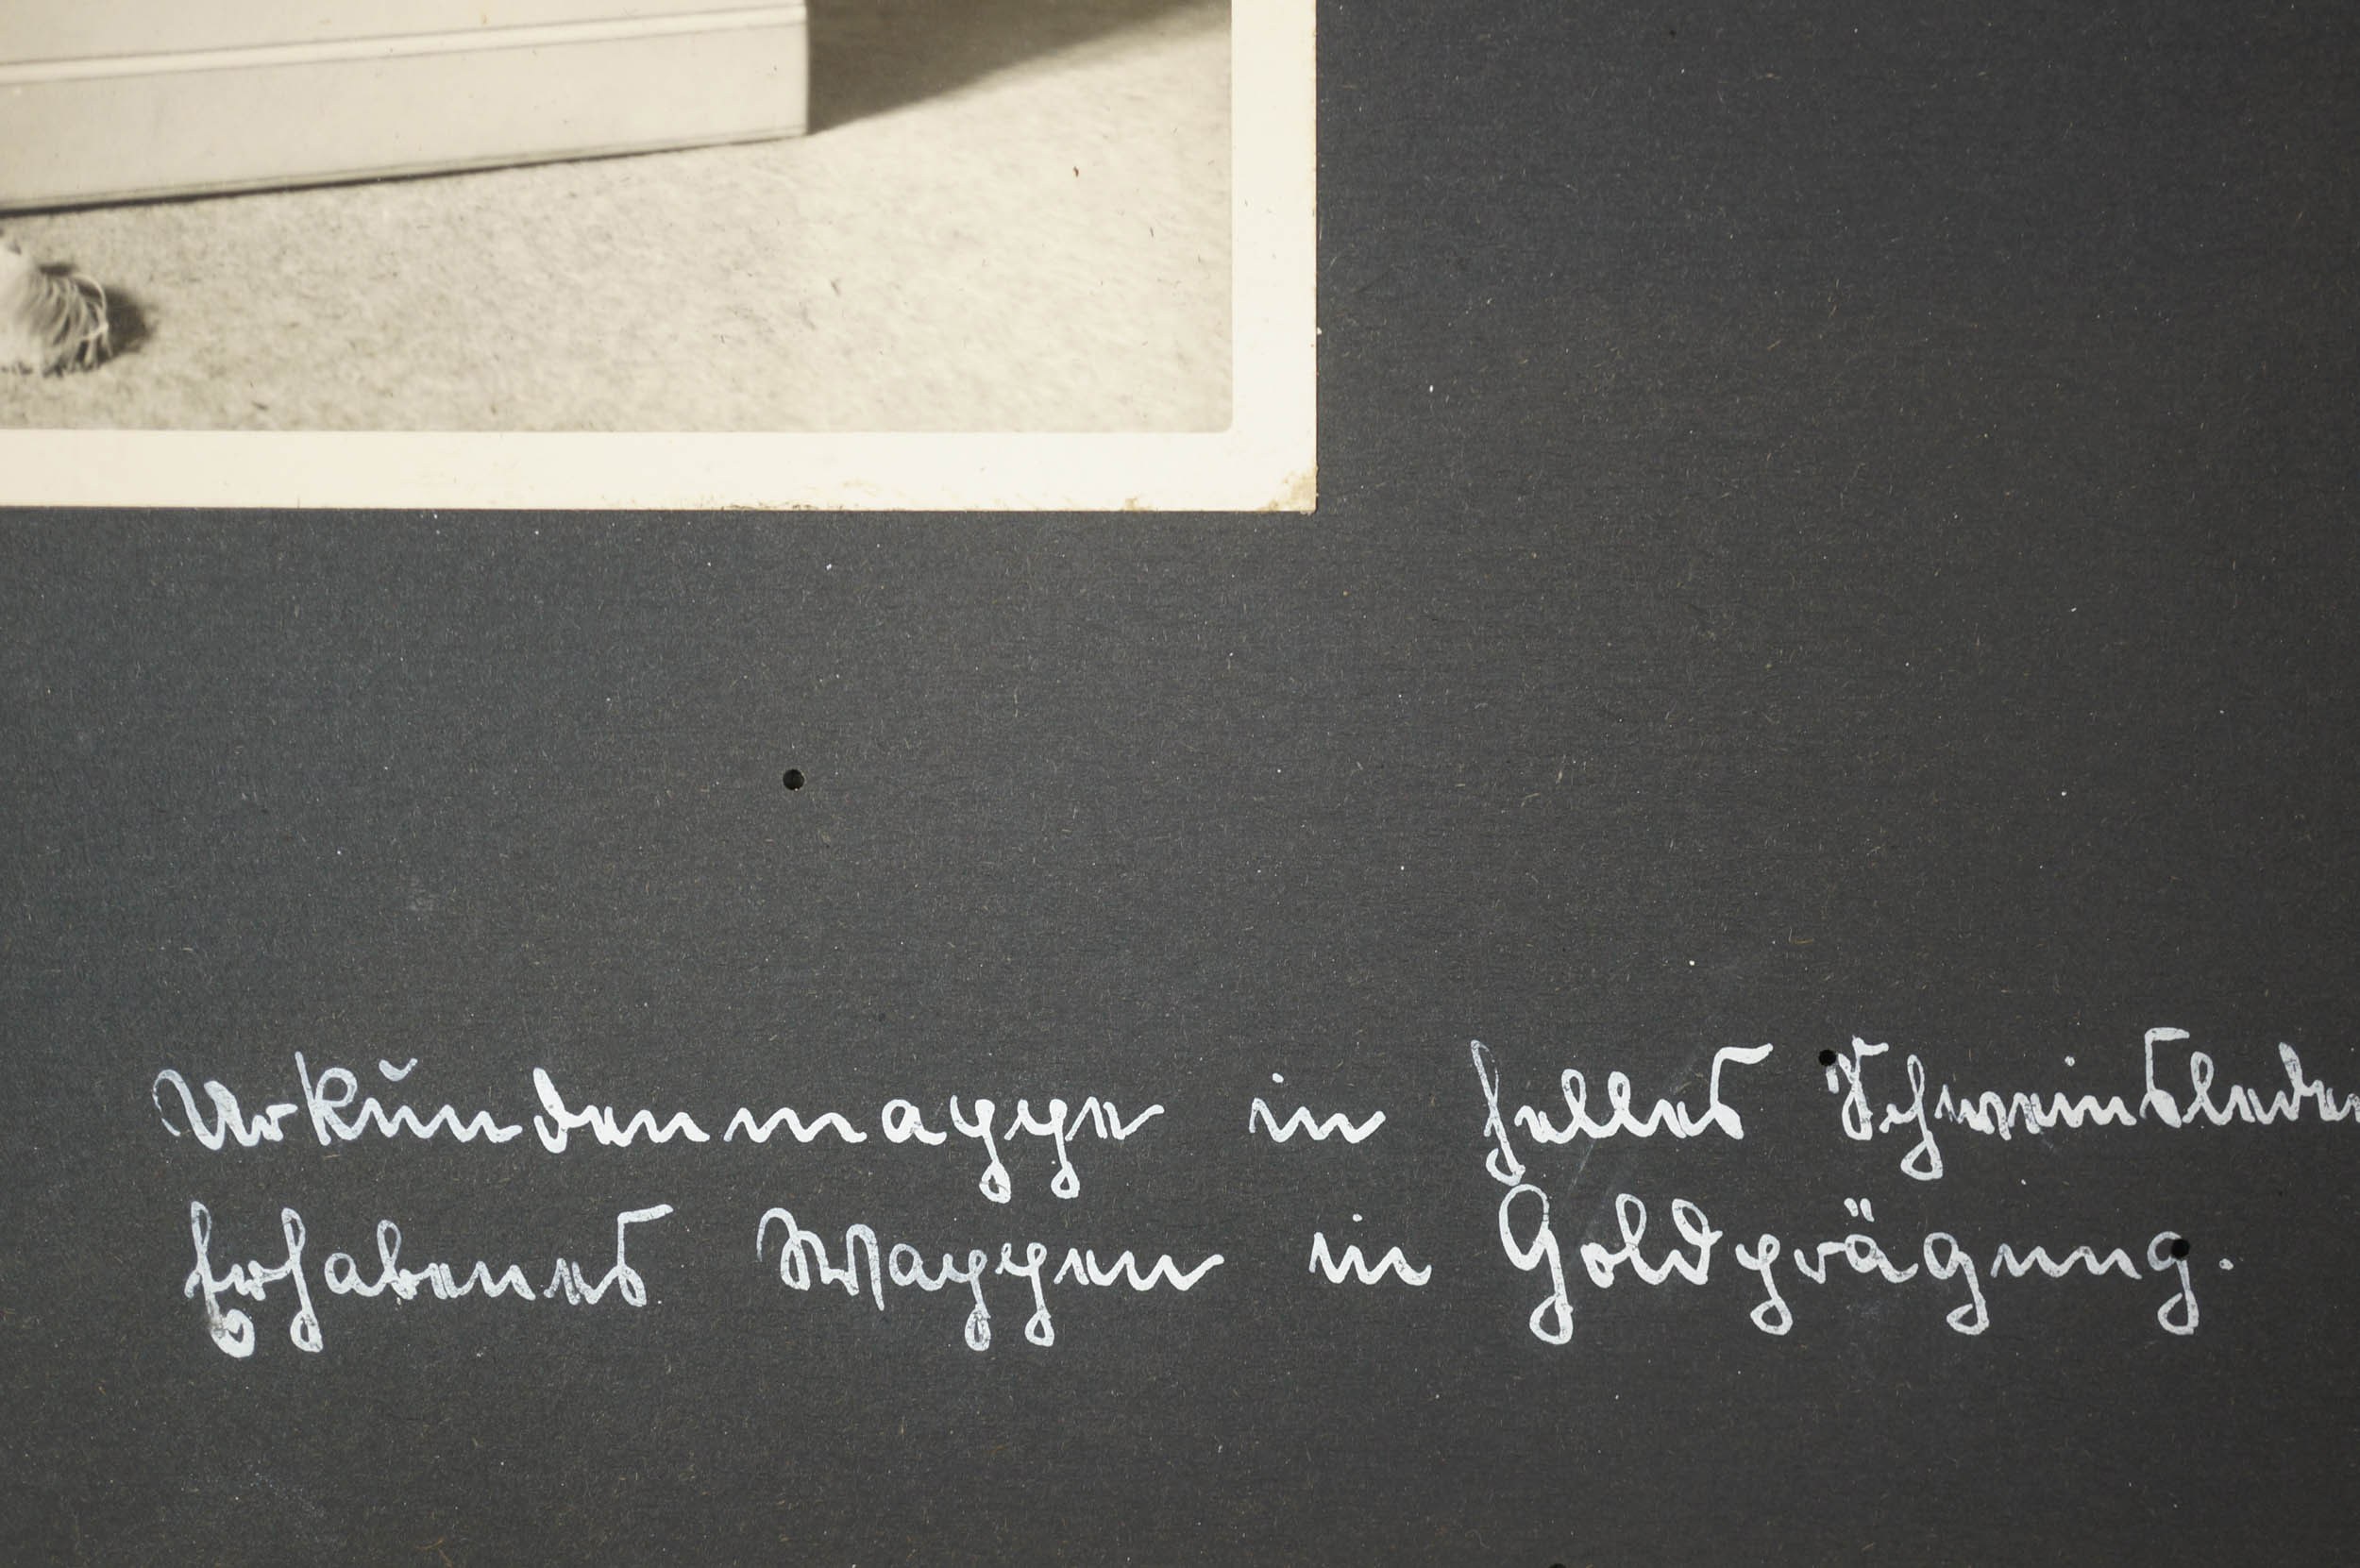 Urkundenmappe in helles Schweinsleder
Erhabenes Wappen in Goldprägung.